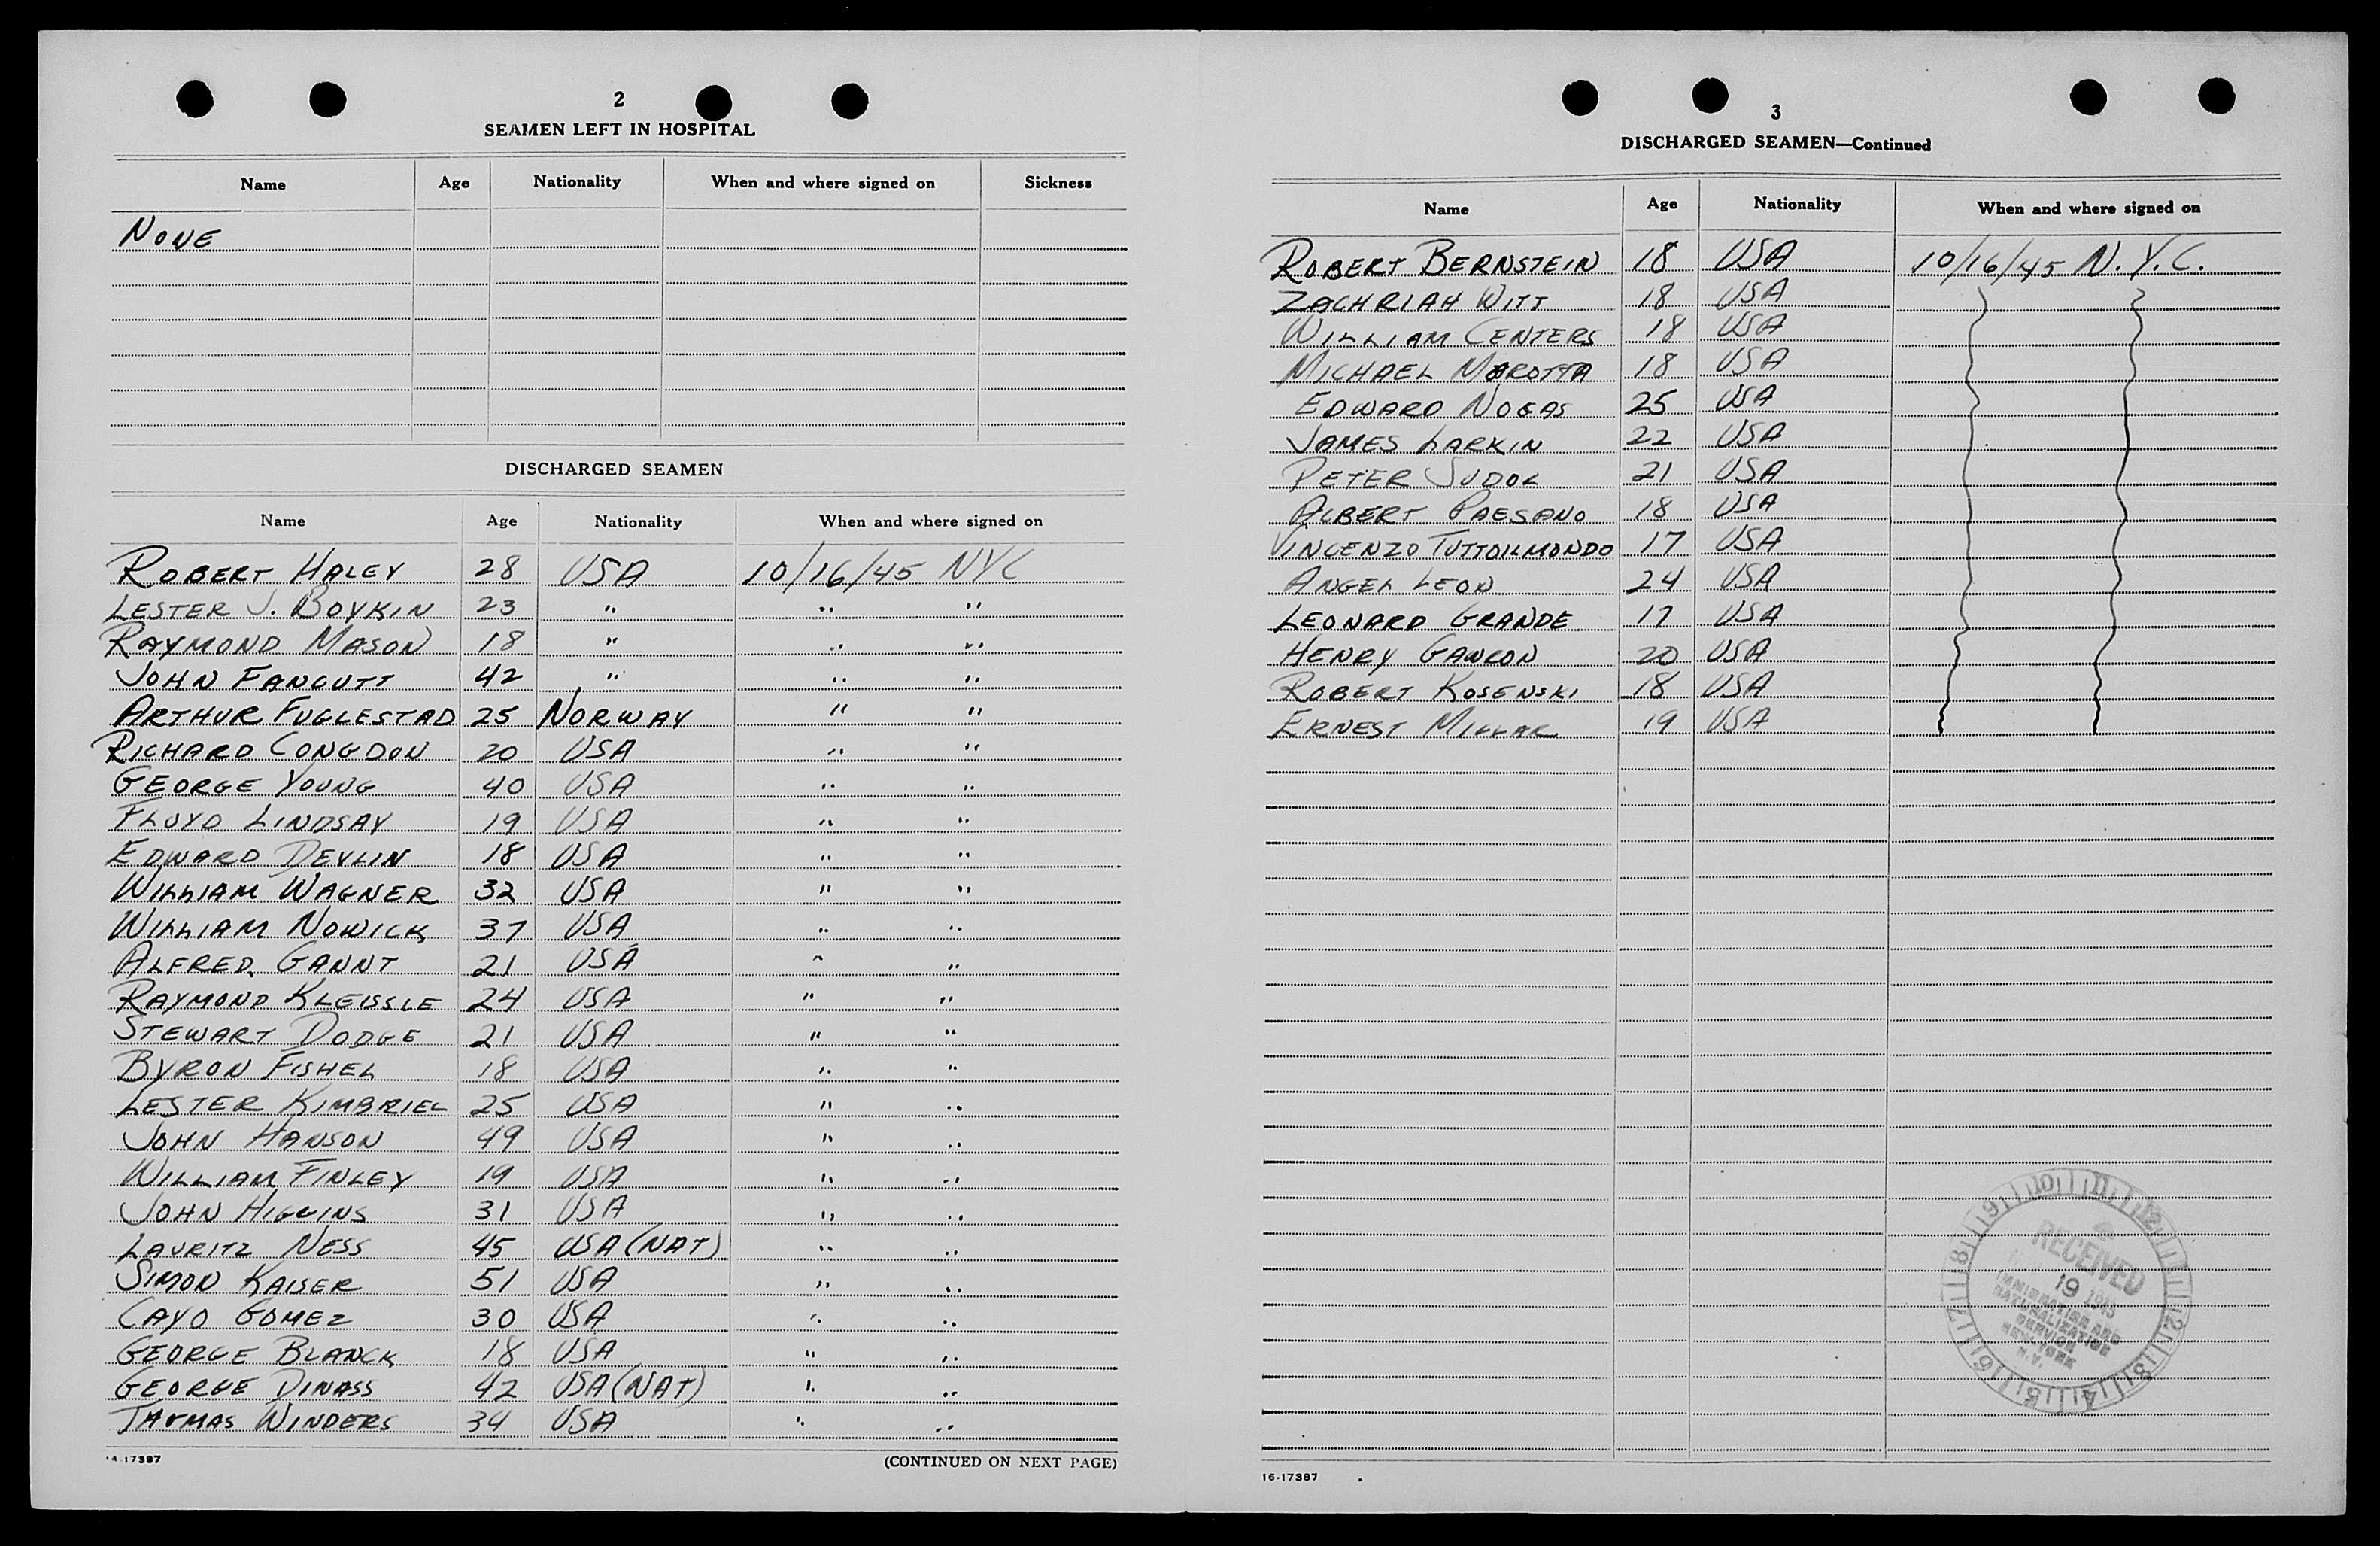 2
SEAMEN LEFT IN HOSPITAL
Name Age Nationality When and where signed on Sickness
NONE
DISCHARGED SEAMEN
Name Age Nationality When and where signed on
ROBERT HALEY 28 USA 10/16/45 NYC
LESTER J. BOYKIN 23 " " "
RAYMOND MASON 18 " " "
JOHN FANCUTT 42 " " "
ARTHUR FUGLESTAD 25 NORWAY " "
RICHARD CONGDON 20 USA " "
GEORGE YOUNG 40 USA " "
FLOYD LINDSAY 19 USA " "
EDWARD DEVLIN 18 USA " "
WILLIAM WAGNER 32 USA " "
WILLIAM NOWICK 37 USA " "
ALFRED GANNT 21 USA " "
RAYMOND KLEISSLE 24 USA " "
STEWART DODGE 21 USA " "
BYRON FISHEL 18 USA " "
LESTER KIMBRIEL 25 USA " "
JOHN HANSON 49 USA " "
WILLIAM FINLEY 19 USA " "
JOHN HIGGINS 31 USA " "
LAURITZ NESS 45 USA (NAT) " "
SIMON KAISER 51 USA " "
CAYO GOMEZ 30 USA " "
GEORGE BLANCK 18 USA " "
GEORGE DINASS 42 USA (NAT) " "
THOMAS WINDERS 34 USA " "
16-17387 (CONTINUED ON NEXT PAGE)
3
DISCHARGED SEAMEN—Continued
Name Age Nationality When and where signed on
ROBERT BERNSTEIN 18 USA 10/16/45 N.Y.C.
ZACHRIAH WITT 18 USA
WILLIAM CENTERS 18 USA
MICHAEL MAROTTA 18 USA
EDWARD NOGAS 25 USA
JAMES LARKIN 22 USA
PETER SUDOL 21 USA
ALBERT PAESANO 18 USA
VINCENZO TUTTOILMONDO 17 USA
ANGEL LEON 24 USA
LEONARD GRANDE 17 USA
HENRY GAWRON 20 USA
ROBERT KOSENSKI 18 USA
ERNEST MILLAR 19 USA
RECEIVED
19 1945
IMMIGRATION AND
NATURALIZATION
SERVICE
NEW YORK
N.Y.
16-17387